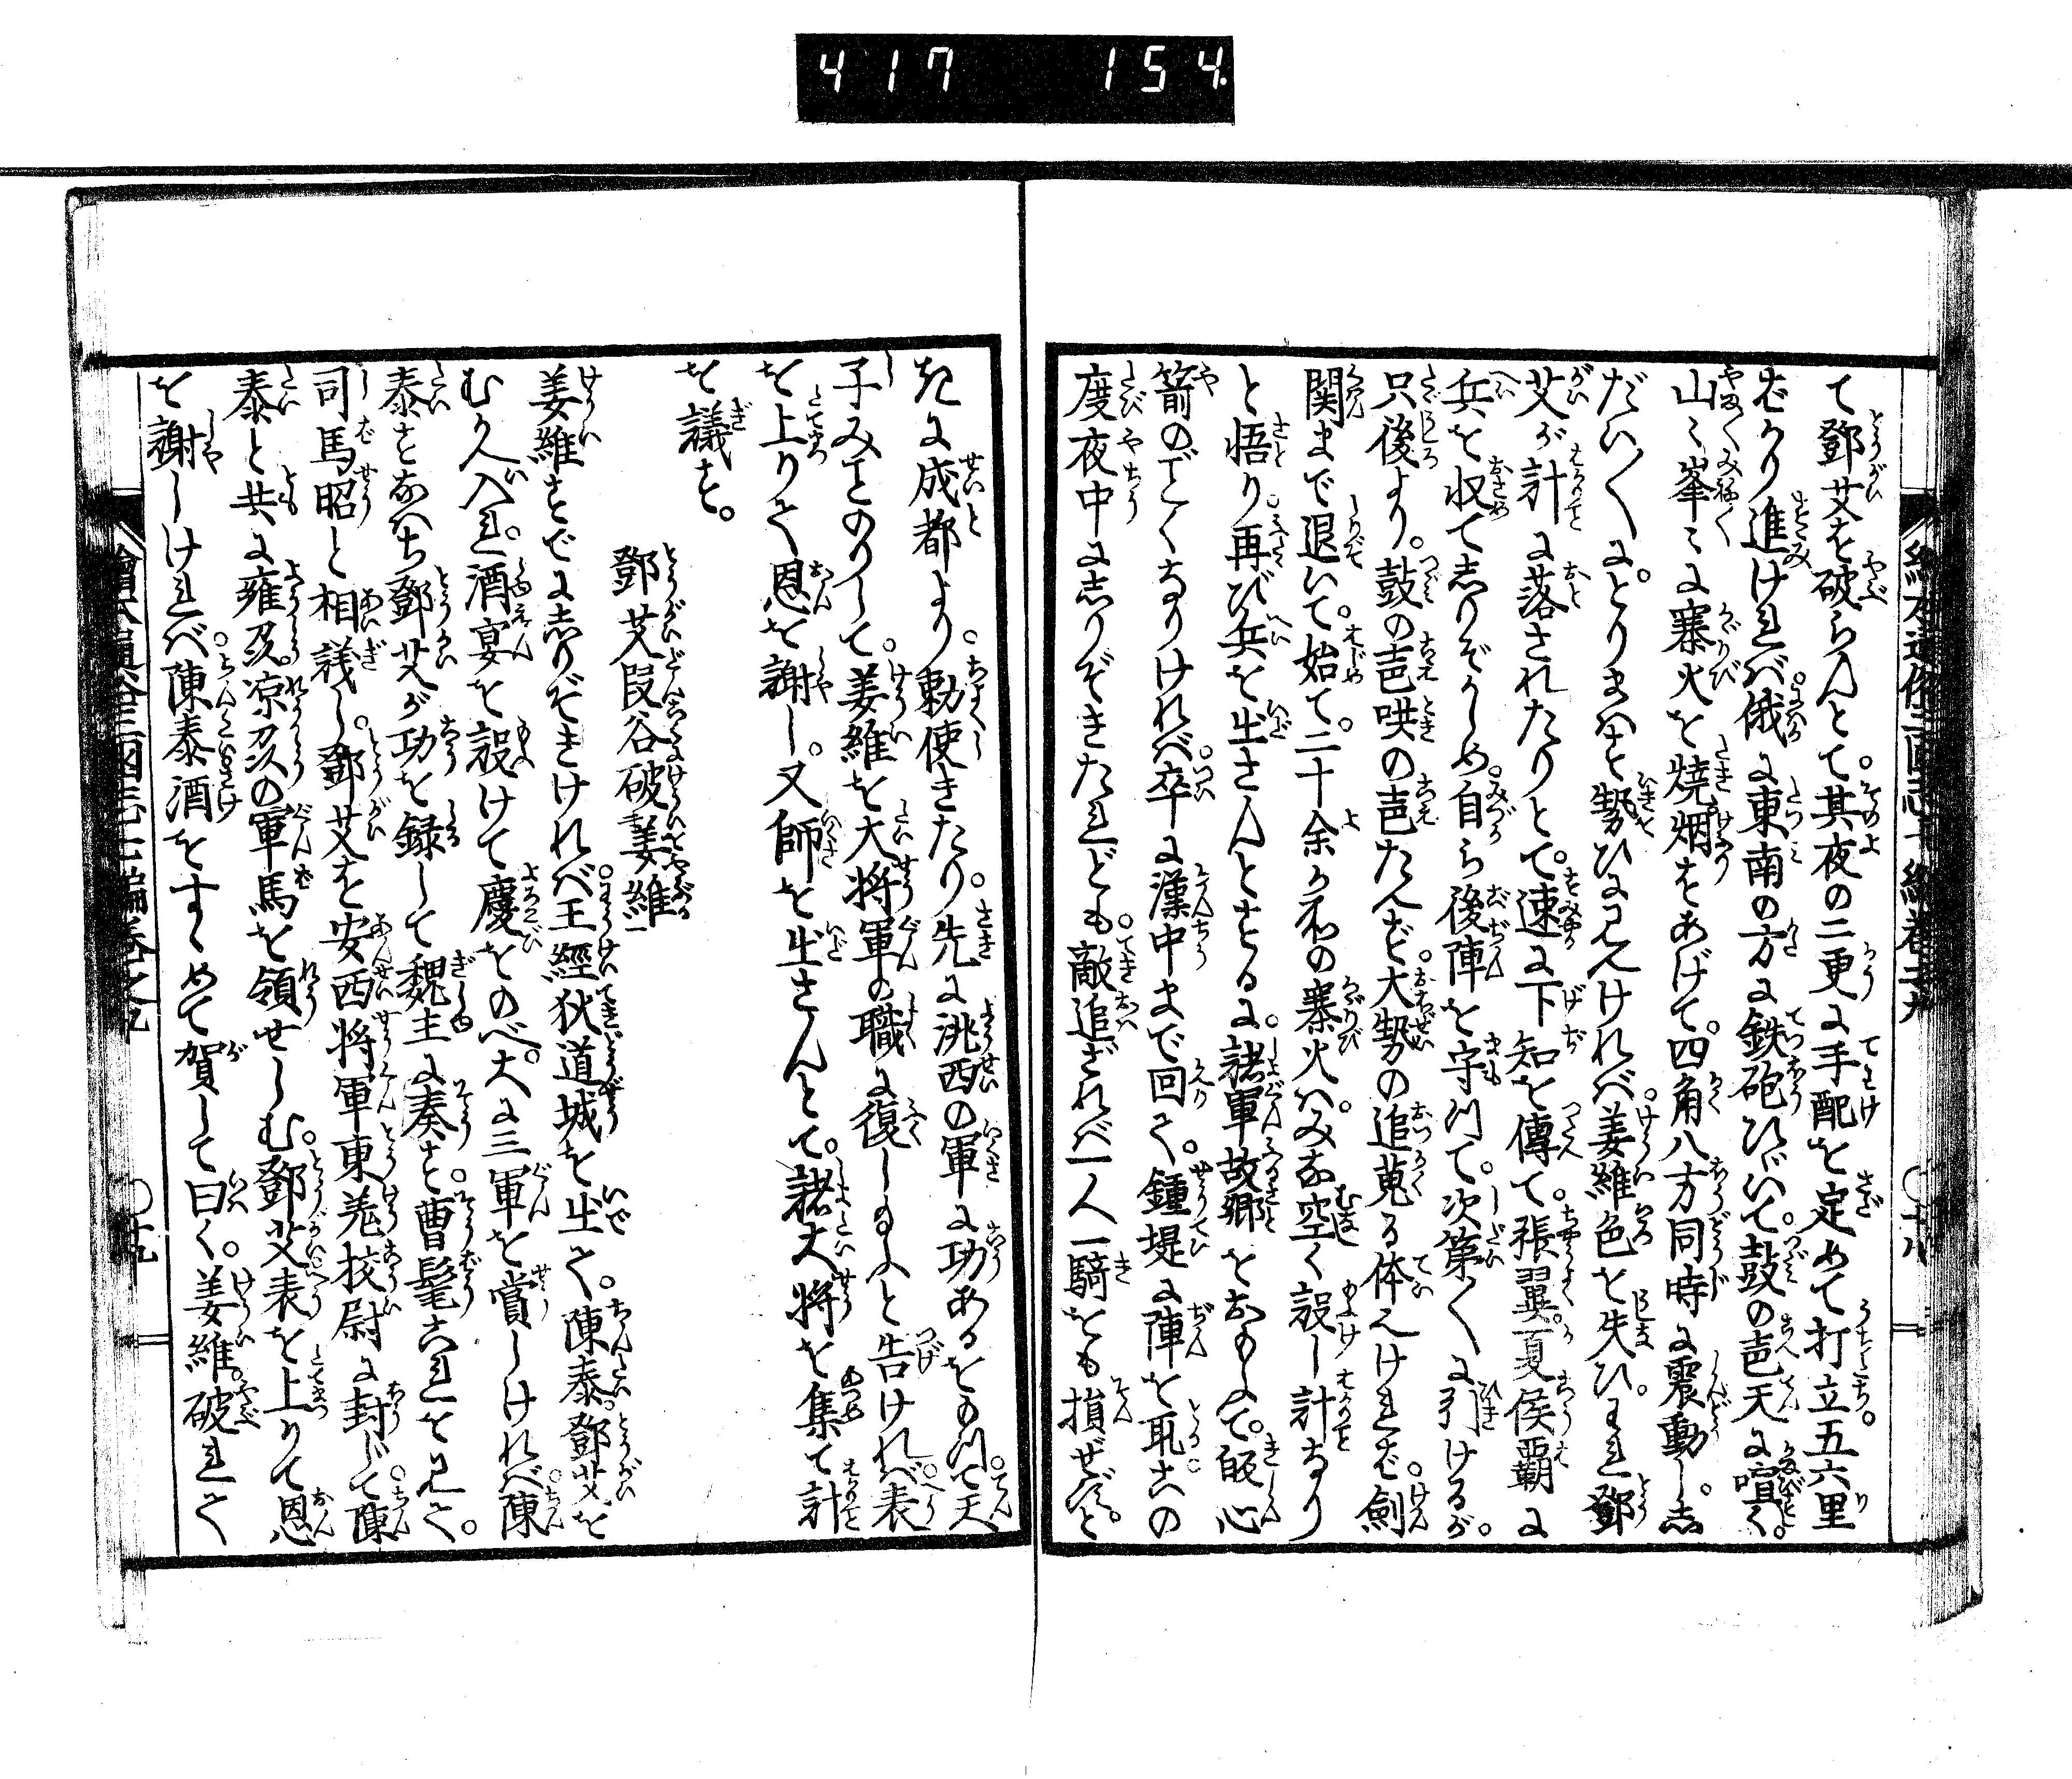 417 154
て鄧艾を破らんとて。其夜の二更に手配を定めて打立。五六里
ばかり進ければ。俄に東南の方に鉄砲ひゞいて。鼓の声天に喧く。
山〻峯〻に寨火を焼烟をあげて。四角八方同時に震動し。し
だい〳〵にとりまはす勢ひに見えければ。姜維色を失ひ。われ鄧
艾が計に落されたりとて。速に下知を傳て。張翼夏侯覇に
兵を収てしりぞかしめ。自ら後陣を守つて。次第〳〵に引けるが。
只後より。鼓の声哄の声たえず。大勢の追蒐る体見えければ。劍
関まで退いて。始て。二十余か所の寨火は。みな空く設し計なり
と悟り。再び兵を出さんとするに。諸軍故郷をおもふて。皈心
箭のごとくなりければ。卒に漢中まで回て。鍾堤に陣を取。この
度夜中にしりぞきたれども。敵追ざれば一人一騎をも損ぜず。と
きに成都より。勅使きたり。先に洮西の軍に功あるをもつて。天
子みことのりして。姜維を大将軍の職に復し給ふと告ければ。表
を上りて恩を謝し。又師を出さんとて。諸大将を集て計
を議す。
鄧艾叚谷破姜維
姜維すでにしりぞきければ。王經狄道城を出て。陳泰鄧艾を
むかへ入れ。酒宴を設けて慶をのべ。大に三軍を賞しければ。陳
泰すなはち鄧艾が功を録して魏主に奏す。曹髦これを見て。
司馬昭と相議し。鄧艾を安西将軍東羗校尉に封じて。陳
泰と共に雍州。凉州の軍馬を領せしむ。鄧艾表を上りて恩
を謝しければ。陳泰酒をすゝめて賀して曰く。姜維。破れて